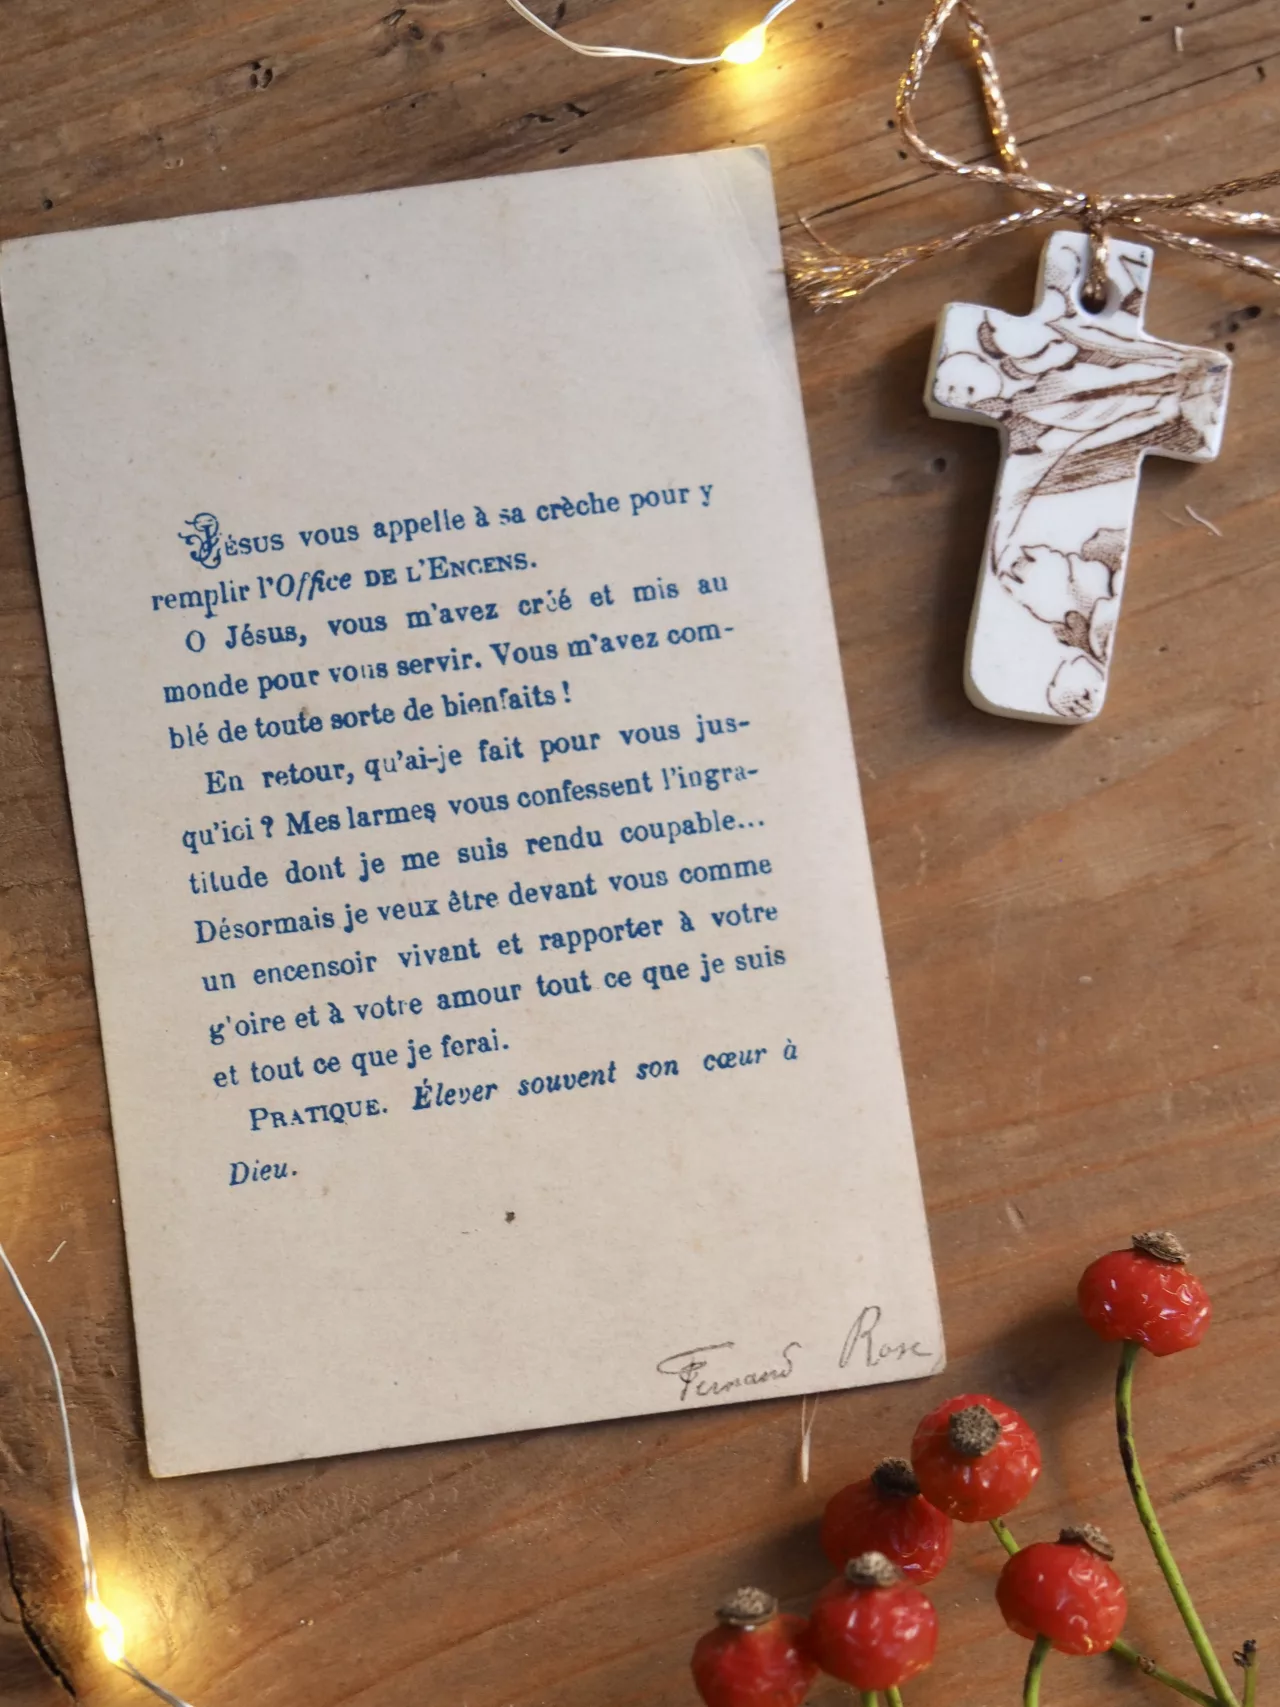 JÉSUS vous appelle à sa crèche pour y
remplir l'Office DE L'ENCENS.
O Jésus, vous m'avez créé et mis au
monde pour vous servir. Vous m'avez com-
blé de toute sorte de bienfaits !
En retour, qu'ai-je fait pour vous jus-
qu'ici ? Mes larmes vous confessent l'ingra-
titude dont je me suis rendu coupable...
Désormais je veux être devant vous comme
un encensoir vivant et rapporter à votre
g'oire et à votre amour tout ce que je suis
et tout ce que je ferai.
PRATIQUE. Élever souvent son cœur à
Dieu.
Fernand Rose